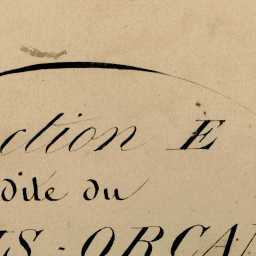 ction E
Dite du
IS-ORCA